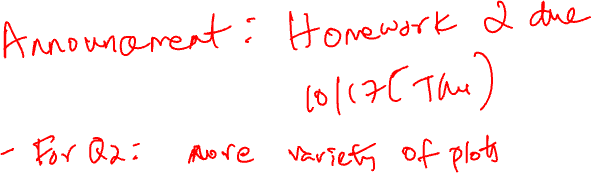 Announcement: Homework 2 due
10/17 (Thu)
- For Q2: more variety of plots